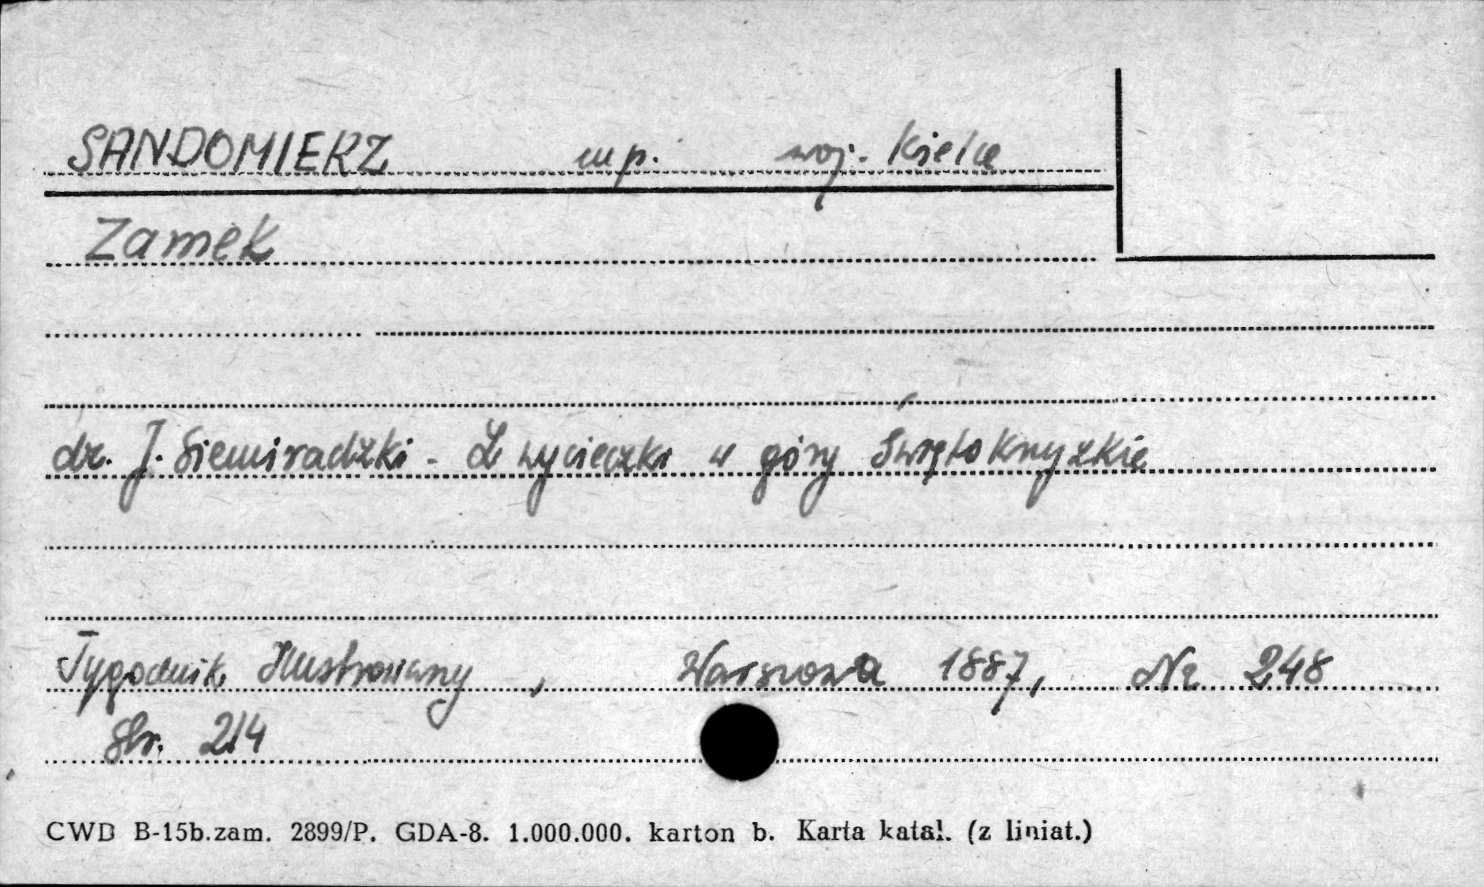 SANDOMIERZ mp. woj. Kielce
Zamek
dr. J. Siemiradzki - Z wycieczki w góry Świętokrzyzkie
Tygodnik Illustrowany , Warszawa 1887, Nr 248
str. 214
CWD B-15b.zam. 2899/P. GDA-8. 1.000.000. karton b. Karta katal. (z liniat.)